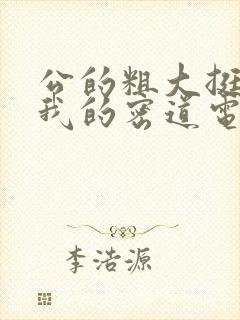 公的粗大挺
我的密道電
李浩源